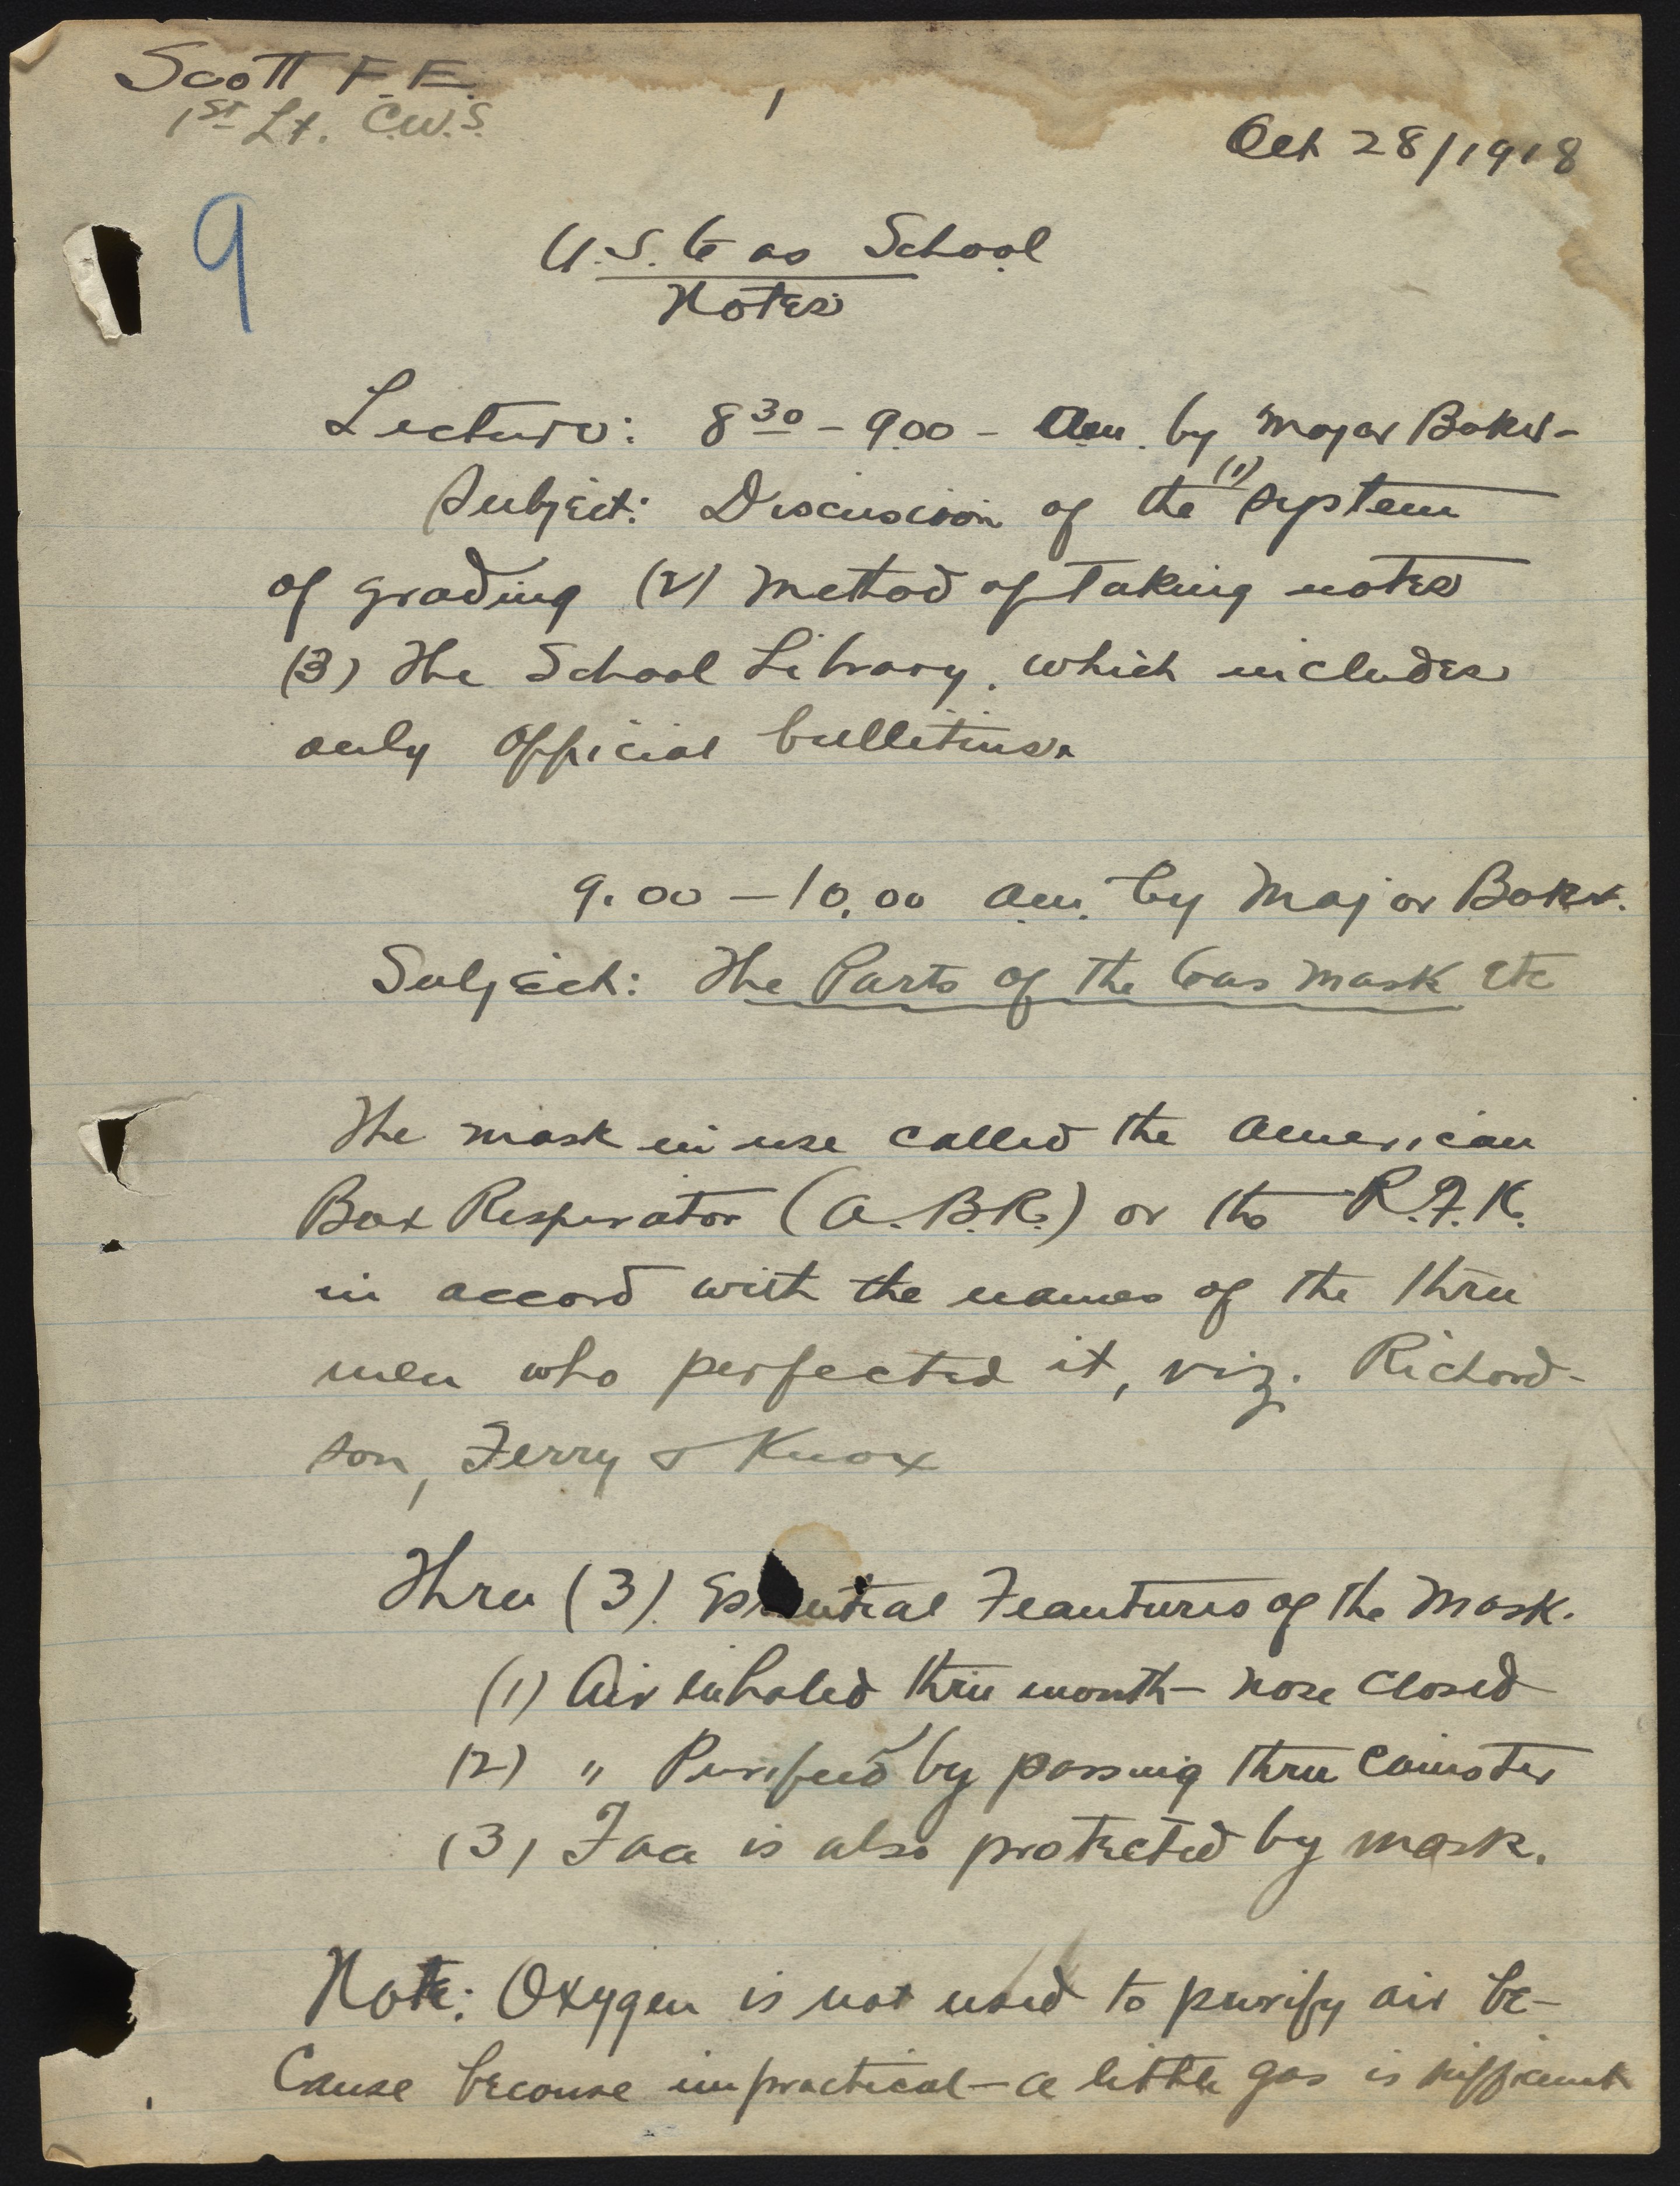 Scott F.E.
1st Lt. C.W.S.
1
Oct 28/1918
9
U.S. Gas School
Notes
Lecture: 8 30 - 9.00 - Am. by Major Baker -
Subject: Discussion of the (1) system
of grading (2) Method of taking notes
(3) The School Library, which includes
only official bulletins.
9.00 - 10.00 am. by Major Baker.
Subject: The Parts of the Gas Mask etc
The mask in use called the American
Box Respirator (A.B.R.) or the R.F.K.
in accord with the names of the three
men who perfected it, viz. Richard-
son, Ferry & Knox
Three (3) Essential Feautures of the Mask.
(1) Air inhaled thru mouth - nose closed
(2) " Purified by passing thru Canister
(3) Face is also protected by mask.
Note: Oxygen is not used to purify air be-
cause because impractical - a little gas is sufficient